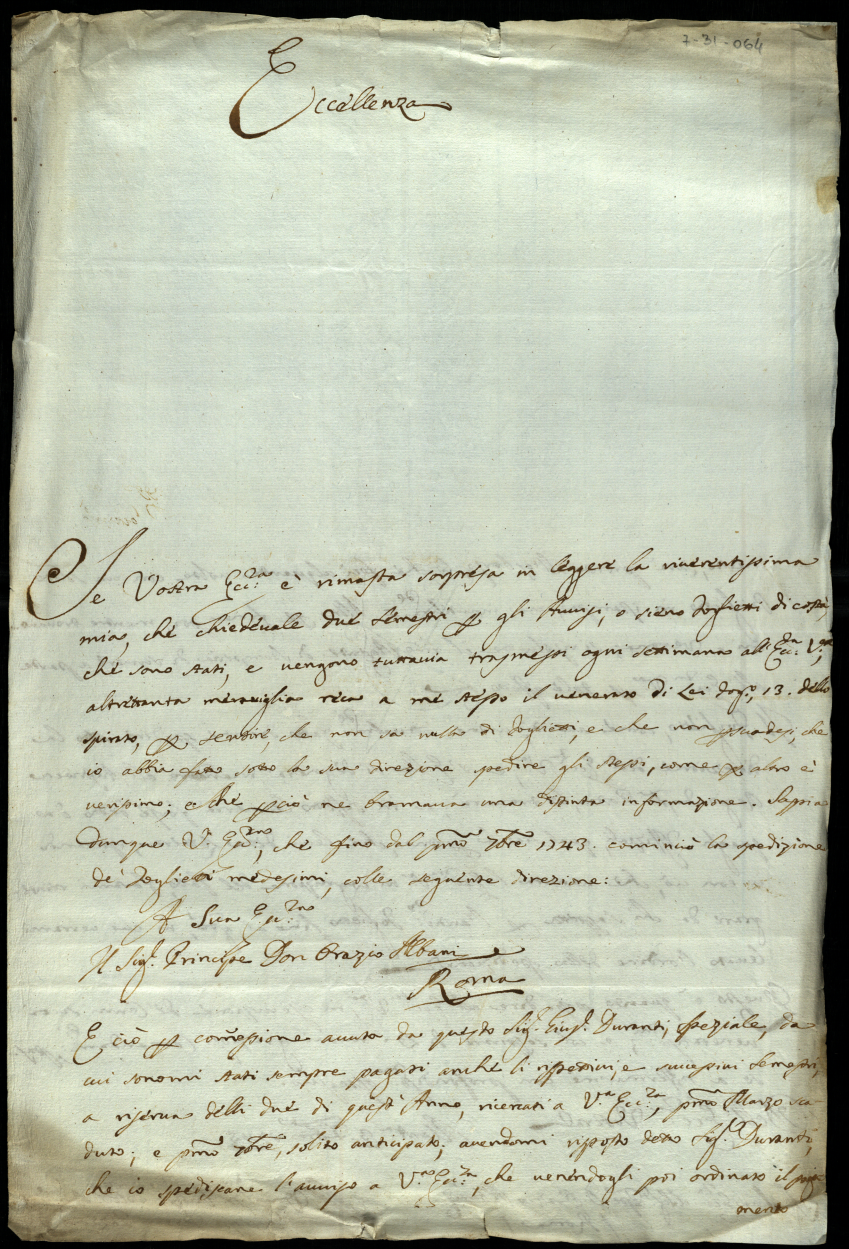 7-31-064
Eccellenza
Se Vostra Ecc.za è rimasta sorpresa in leggere la riverentissima
mia, che chiedevale due semestri p gli Avvisi, o sieno foglietti di costà,
che sono stati, e vengono tuttavia trasmessi ogni settimana all' Ecc.za V.ra
altrettanta meraviglia reca a me stesso il venerato di Lei fog.o 13. dello
spirato, p sentire, che non sa nulla di foglietti, e che non psuadesi, che
io abbia fatto sotto la sua direzione spedire gli stessi, come p altro è
verissimo; e che pciò ne bramava una distinta informazione. Sappia
dunque V. Ecc.za, che fino dal pmo 7bre 1743. cominciò la spedizione
de' foglietti medesimi, colla seguente direzione:
A Sua Ecc.za
Il Sig.r Principe Don Orazio Albani
Roma
E ciò p comissione avuta da questo Sig.r Giusp. Duranti, speziale, da
cui sonomi stati sempre pagati anche li rispettivi, e successivi semestri,
a riserva delli due di quest' Anno, ricercati a V.a Ecc.za, pmo Marzo sca-
duto; e pmo 7bre, solito anticipato; avendomi risposto detto Sig.r Duranti,
che io spedissene l'avviso a V.a Ecc.za, che venendogli poi ordinato il paga-
mento